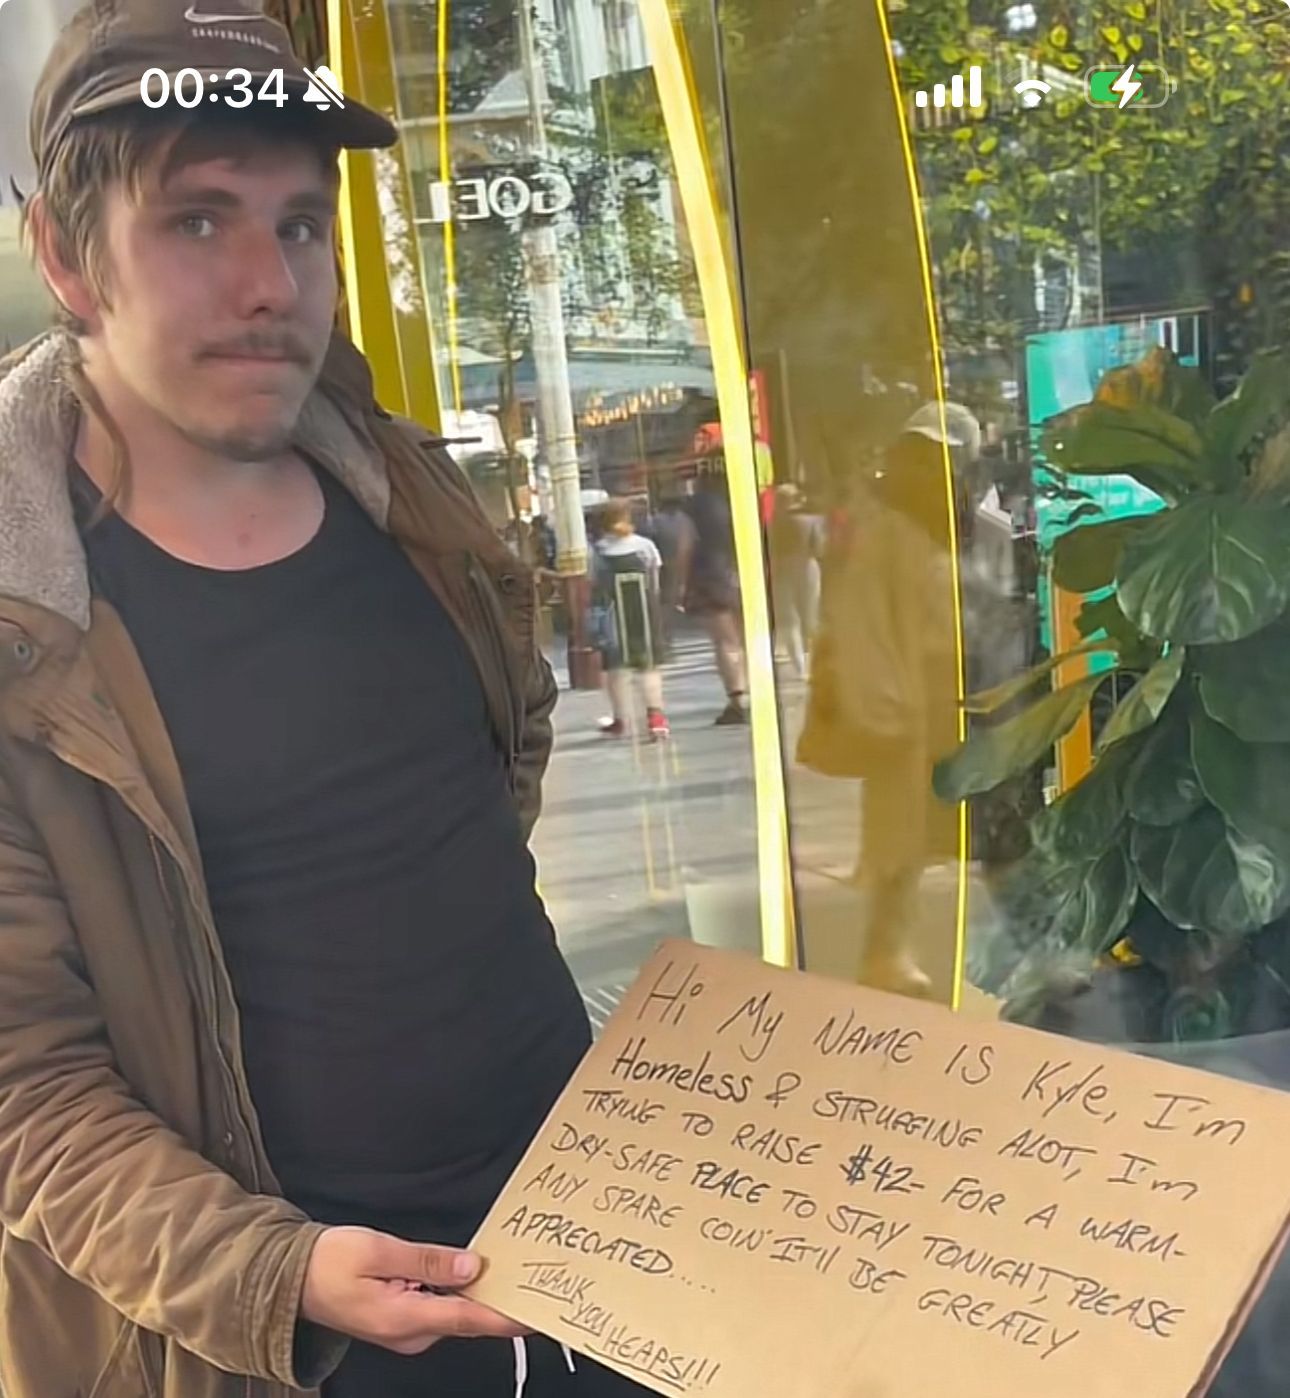 SKATEBOARDING
00:34
GOEL
Hi My NAME IS Kyle, I'm
Homeless & STRUGGING ALOT, I'm
TRYING TO RAISE $42- FOR A WARM-
DRY-SAFE PLACE TO STAY TONIGHT, PLEASE
ANY SPARE COIN' IT'll BE GREATLY
APPRECIATED.....
THANK
YOU
HEAPS!!!